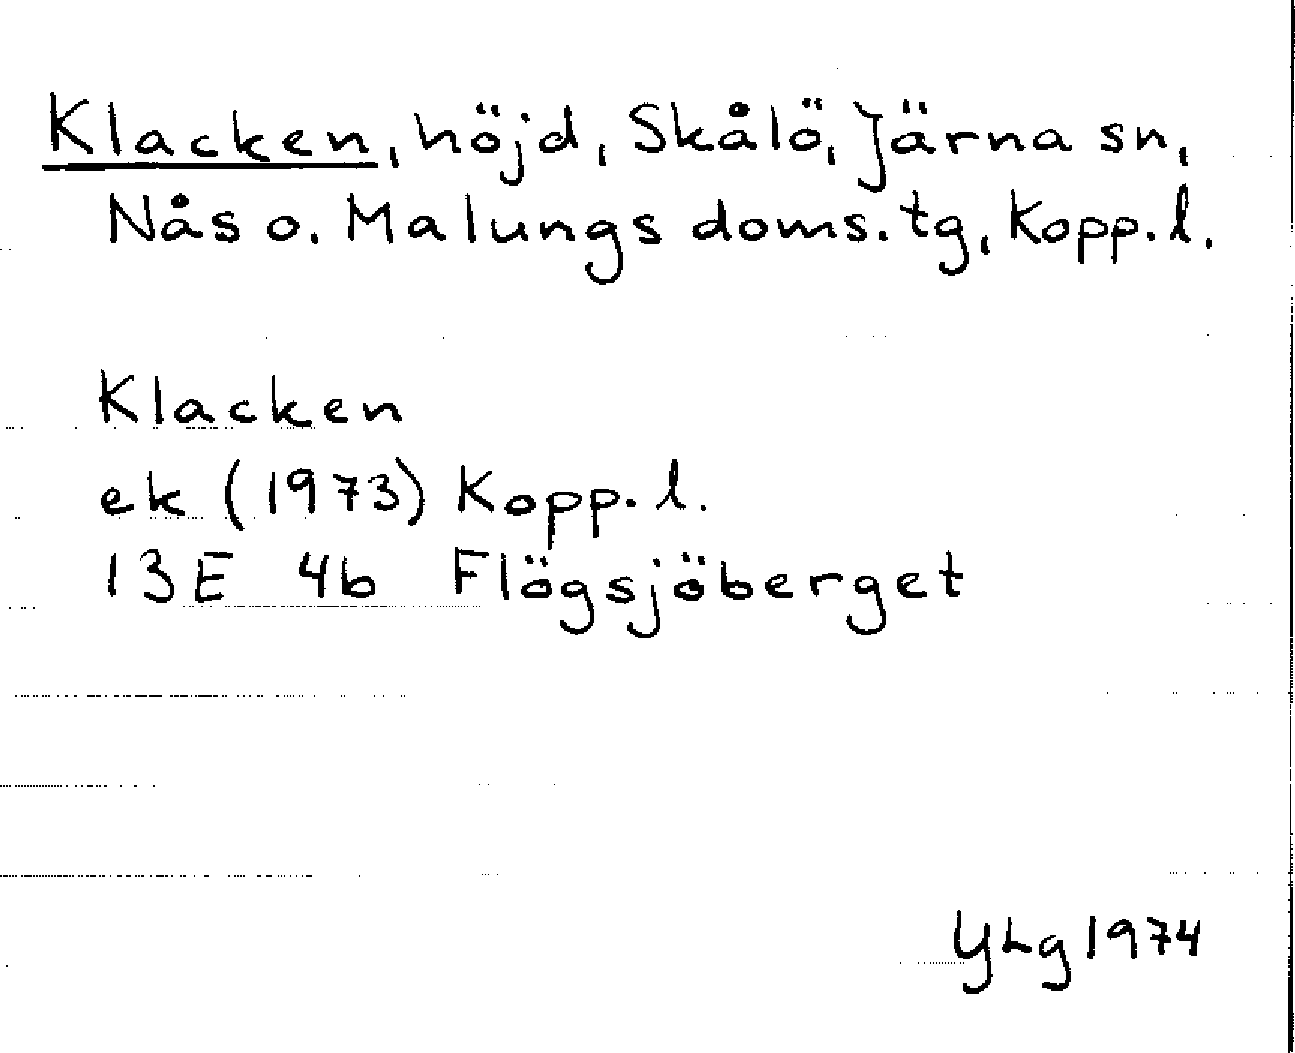 Klacken, höjd, Skålö, Järna sn,
Nås o. Malungs doms.tg, Kopp.l.
Klacken
ek (1973) Kopp.l.
13E 4b Flögsjöberget
YLg 1974